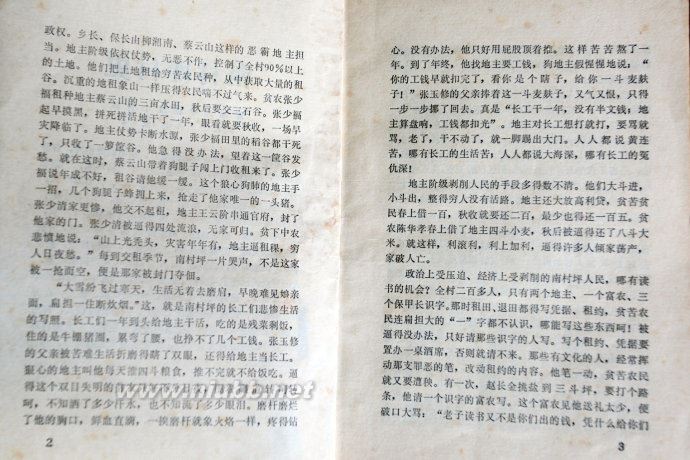 政权。乡长、保长由柳湘南、蔡云山这样的恶霸地主担
当。地主阶级依权仗势，无恶不作，控制了全村90%以上
的土地。他们把土地租给穷苦农民种，从中获取大量的租
谷。沉重的地租象山一样压得农民喘不过气来。贫农张少
福租种地主蔡云山的三亩水田，秋后要交三石谷。张少福
起早摸黑，拼死拼活地干了一年，眼看就要秋收，一场旱
灾降临了。地主仗势卡断水源，张少福田里的稻谷都干死
了，只收了一箩筐谷。他急得没办法，望着这一筐谷发
愁。就在这时，蔡云山带着狗腿子闯上门收租来了。张少
福说年成不好，租谷请她缓一缓。这个狠心狗肺的地主手
一招，几个狗腿子蜂拥上来，抢走了他家唯一的一头猪。
张少清家更惨，他交不起租，地主王云阶串通官府，封了
他家的门。张少清被逼得四处流浪，无家可归。贫下中农
悲愤地说：“山上光秃头，灾害年年有，地主逼租稞，穷
人日夜愁。”每到交租季节，南村坪一片哭声，不是这家
被一抢而空，便是那家被封门夺佃。
“大雪纷飞过寒天，生活无着去磨肩，早晚难见娘亲
面，扁担一住断炊烟。”这，就是南村坪的长工们悲惨生活
的写照。长工们一年到头给地主干活，吃的是残菜剩饭，
住的是牛棚猪圈，累弯了腰，也挣不了几个工钱。张玉修
的父亲被苦难生活折磨得瞎了双眼，还得给地主当长工。
狠心的地主叫他每天推四斗粮食，推不完就不给饭吃。逼
得这个双目失明的
呵，不知洒了多少汗水，也不知流了多少眼泪。磨杆磨烂
了他的胸口，鲜血直淌，一挨磨杆就象火烙一样，疼得钻
2
心。没有办法，他只好用屁股顶着推。这样苦苦熬了一
年。到了年终，他找地主要工钱，狗地主假惺惺地说：
“你的工钱早就扣完了，看你是个瞎子，给你一斗麦麸
子！”张玉修的父亲捧着这一斗麦麸子，又气又恨，只得
一步一步挪了回去。真是“长工干一年，没有半文钱；地
主算盘响，工钱都扣光”。地主对长工想打就打，要骂就
骂，老了，干不动了，就一脚踢出大门。人人都说黄连
苦，哪有长工的生活苦，人人都说大海深，哪有长工的冤
仇深！
地主阶级剥削人民的手段多得数不清。他们大斗进，
小斗出，整得穷人没有活路。地主还大放高利贷，贫苦农
民春上借一百，秋收就要还二百，最少也得还一百五。贫
农陈华孝春上借了地主四斗小麦，秋后被逼得还了八斗大
米。就这样，利滚利，利上加利，逼得许多人倾家荡产，
家破人亡。
政治上受压迫、经济上受剥削的南村坪人民，哪有读
书的机会？全村二百多人，只有两个地主、一个富农、三
个保甲长识字。那时租田、退田都得写凭据、租约，贫苦农
民连扁担大的“一”字都不认识，哪能写这些东西呵！被
逼得没办法，只好请那些识字的人写。写个租约、凭据要
置办一桌酒席，否则就请不来。那些有文化的人，经常挥
动那支罪恶的笔，改动租约的内容。他笔一动，贫苦农民
就又要遭殃。有一次，赵长全挑盐到三斗坪，要打个路
条，他请一个识字的富农写。这个富农见他送礼太少，便
破口大骂：“老子读书又不是你们出的钱，凭什么给你们
3
www.mubb.net